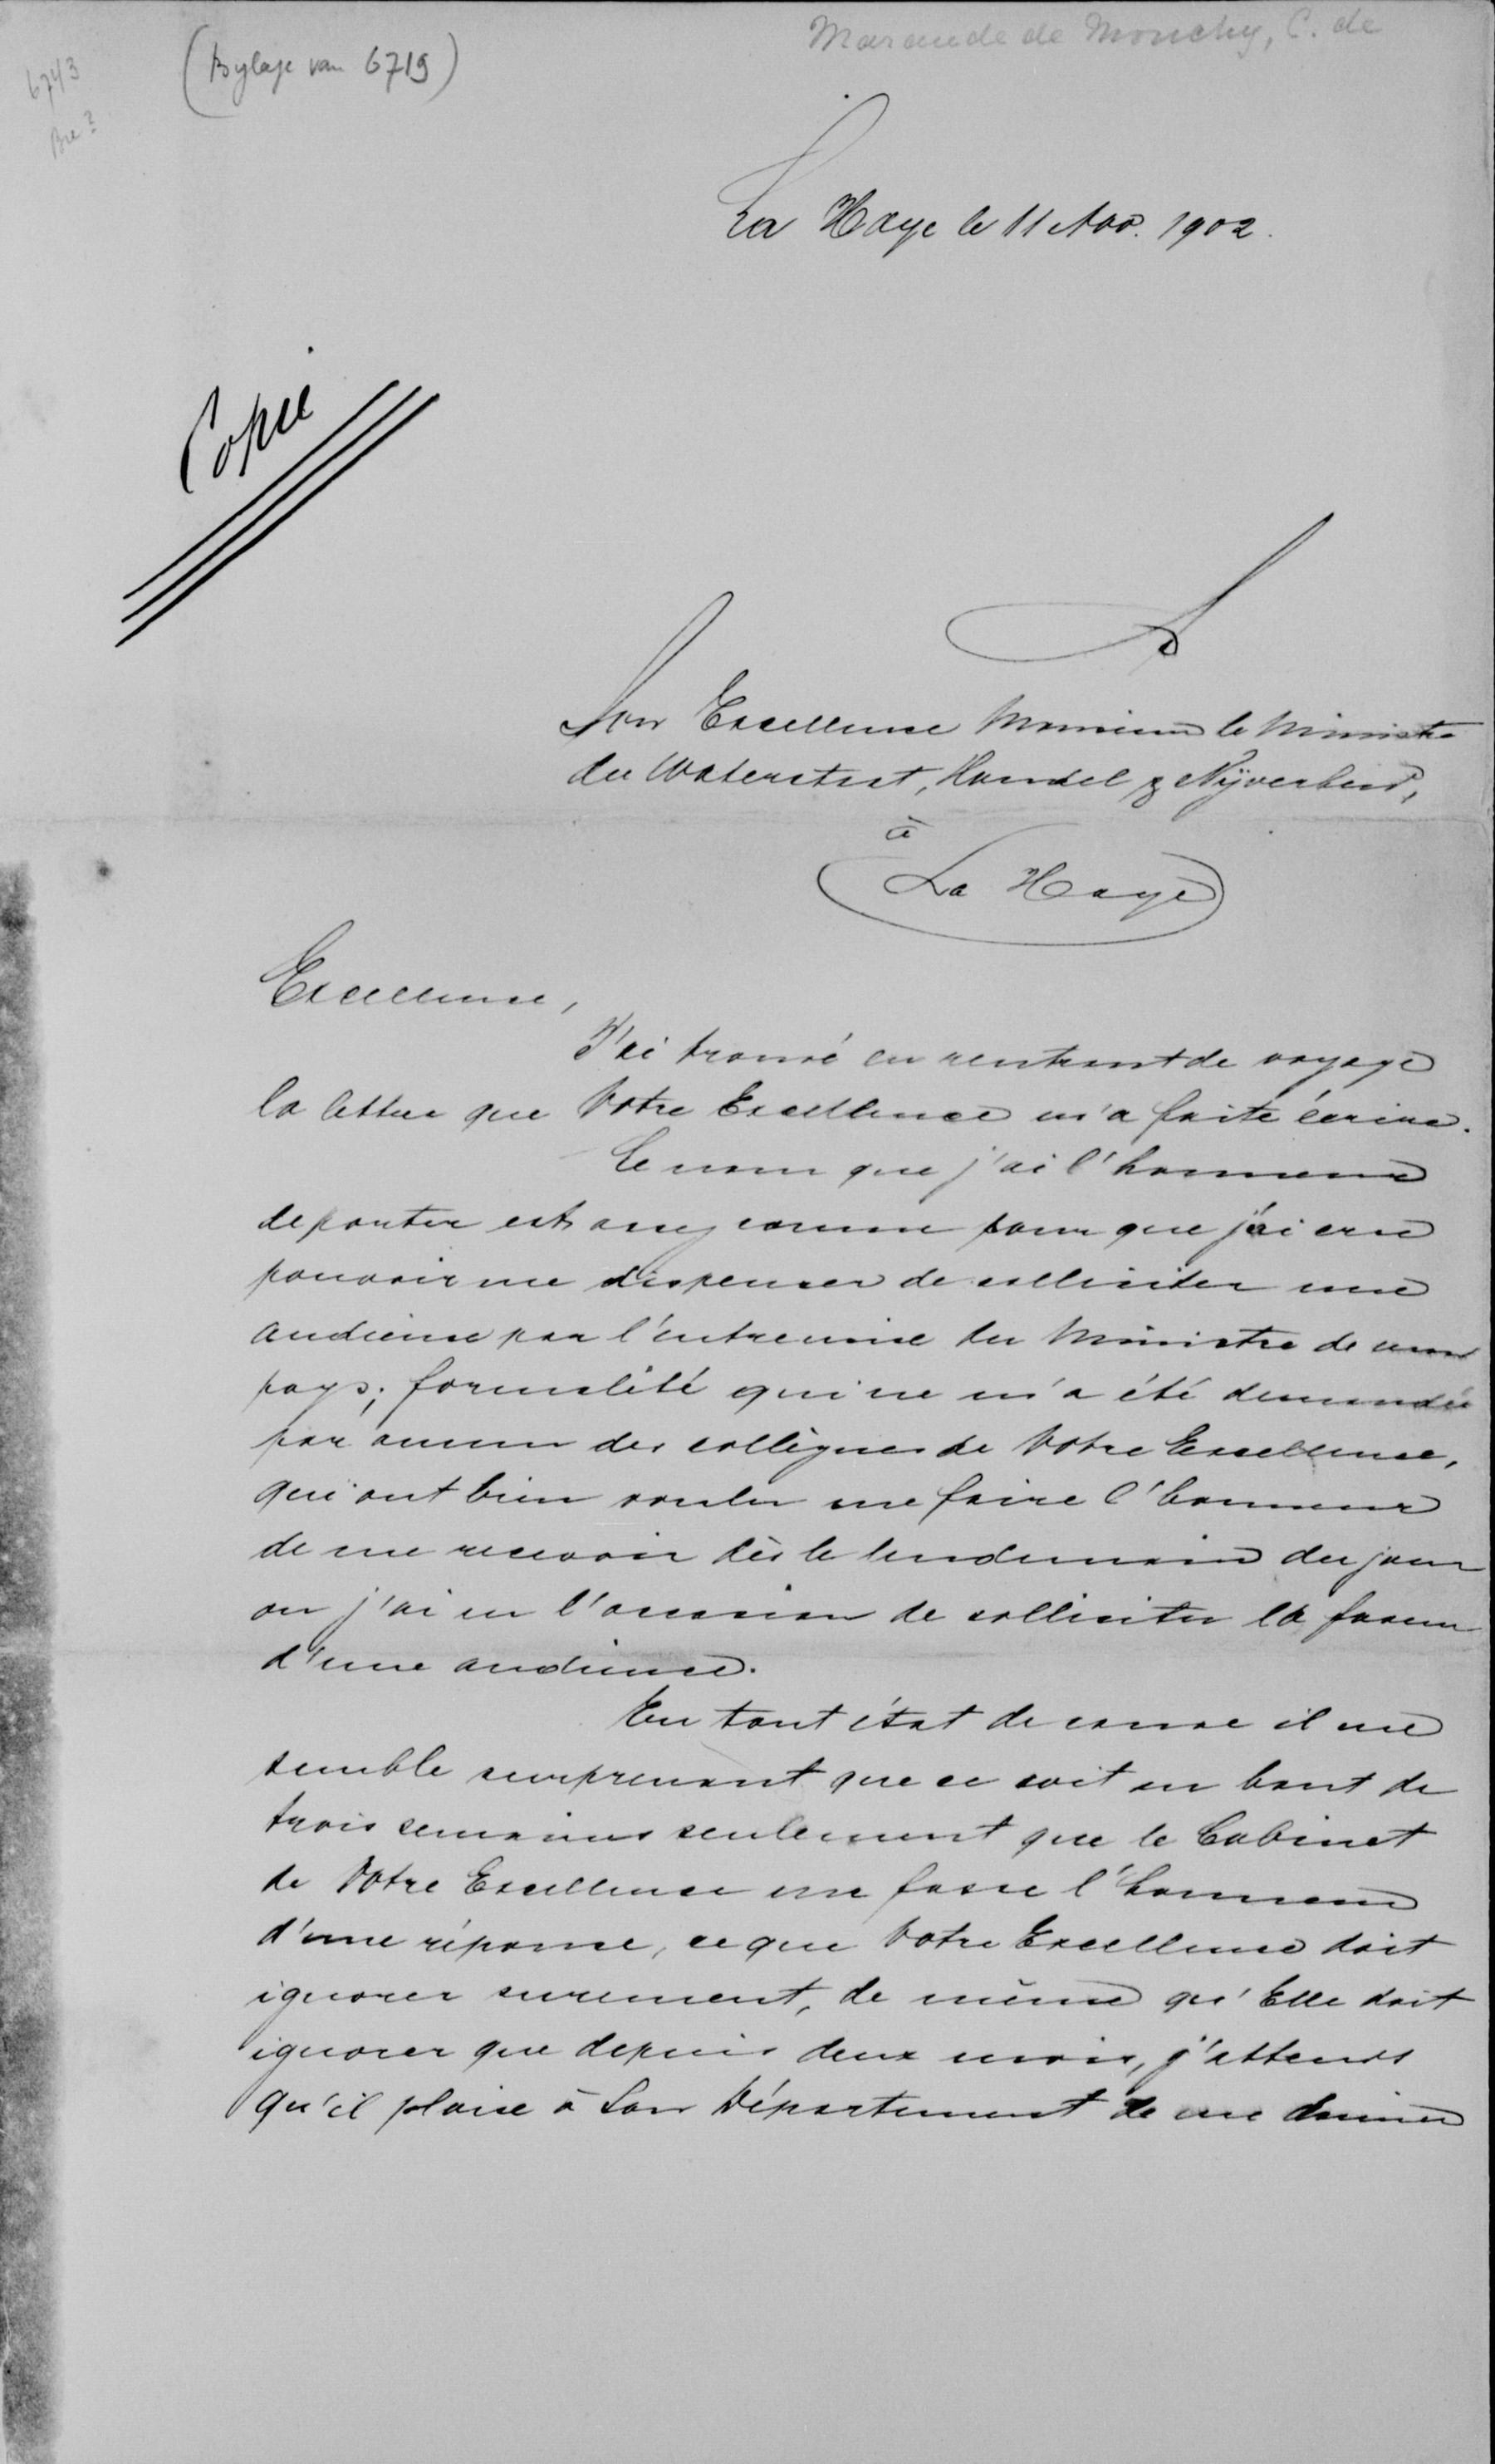 Maraude de Monchy, C. de
(Bylage van 6719)
6743
Bre?
La Haye le 11 Nov. 1902.
Copie
A
Son Excellence Monsieur le Ministre
du Waterstaat, Handel & Nijverheid,
à
La Haye
Excellence,
J'ai trouvé en rentrant de voyage
la lettre que Votre Excellence m'a faite écrire.
Le nom que j'ai l'honneur
de porter est assez connu pour que j'ai cru
pouvoir me dispenser de solliciter une
audience par l'entremise du Ministre de mon
pays; formalité qui ne m'a été demandée
par aucun des collègues de Votre Excellence,
qui ont bien voulu me faire l'honneur
de me recevoir dès le lendemain du jour
ou j'ai eu l'occasion de solliciter la faveur
d'une audience.
En tout état de cause il me
semble surprenant que ce soit au bout de
trois semaines seulement que le Cabinet
de Votre Excellence me fasse l'honneur
d'une réponse, ce que Votre Excellence doit
ignorer surement, de même qu'Elle doit
ignorer que depuis deux mois, j'attends
qu'il plaise à Son Département de me donner